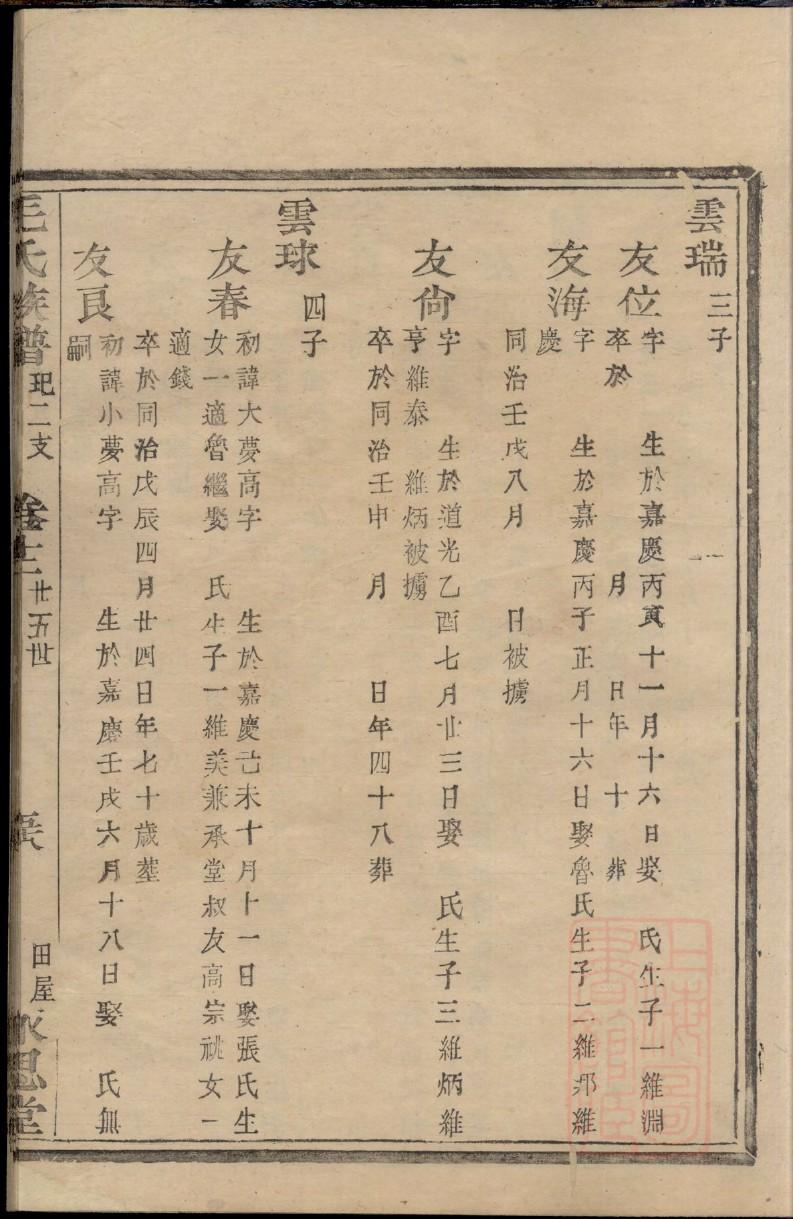 雲瑞 三子
友位 字 生於嘉慶丙寅十一月十六日娶 氏生子一維淵
卒於 月 日年 十 葬
友海 字 生於嘉慶丙子正月十六日娶魯氏生子二維邦維
慶
同治壬戌八月 日被擄
友尙 字 生於道光乙酉七月廿三日娶 氏生子三維炳維
亨維泰 維炳被擄
卒於同治壬申 月 日年四十八葬
雲球 四子
友春 初諱大夢高字 生於嘉慶己未十月十一日娶張氏生
女一適魯繼娶 氏生子一維美兼承堂叔友高宗祧女一
適錢
卒於同治戊辰四月廿四日年七十歲塟
友良 初諱小夢高字 生於嘉慶壬戌六月十八日娶 氏無
嗣
毛氏族譜 玘二支 卷十二 廿五世 田屋 永思堂
上海圖書館藏